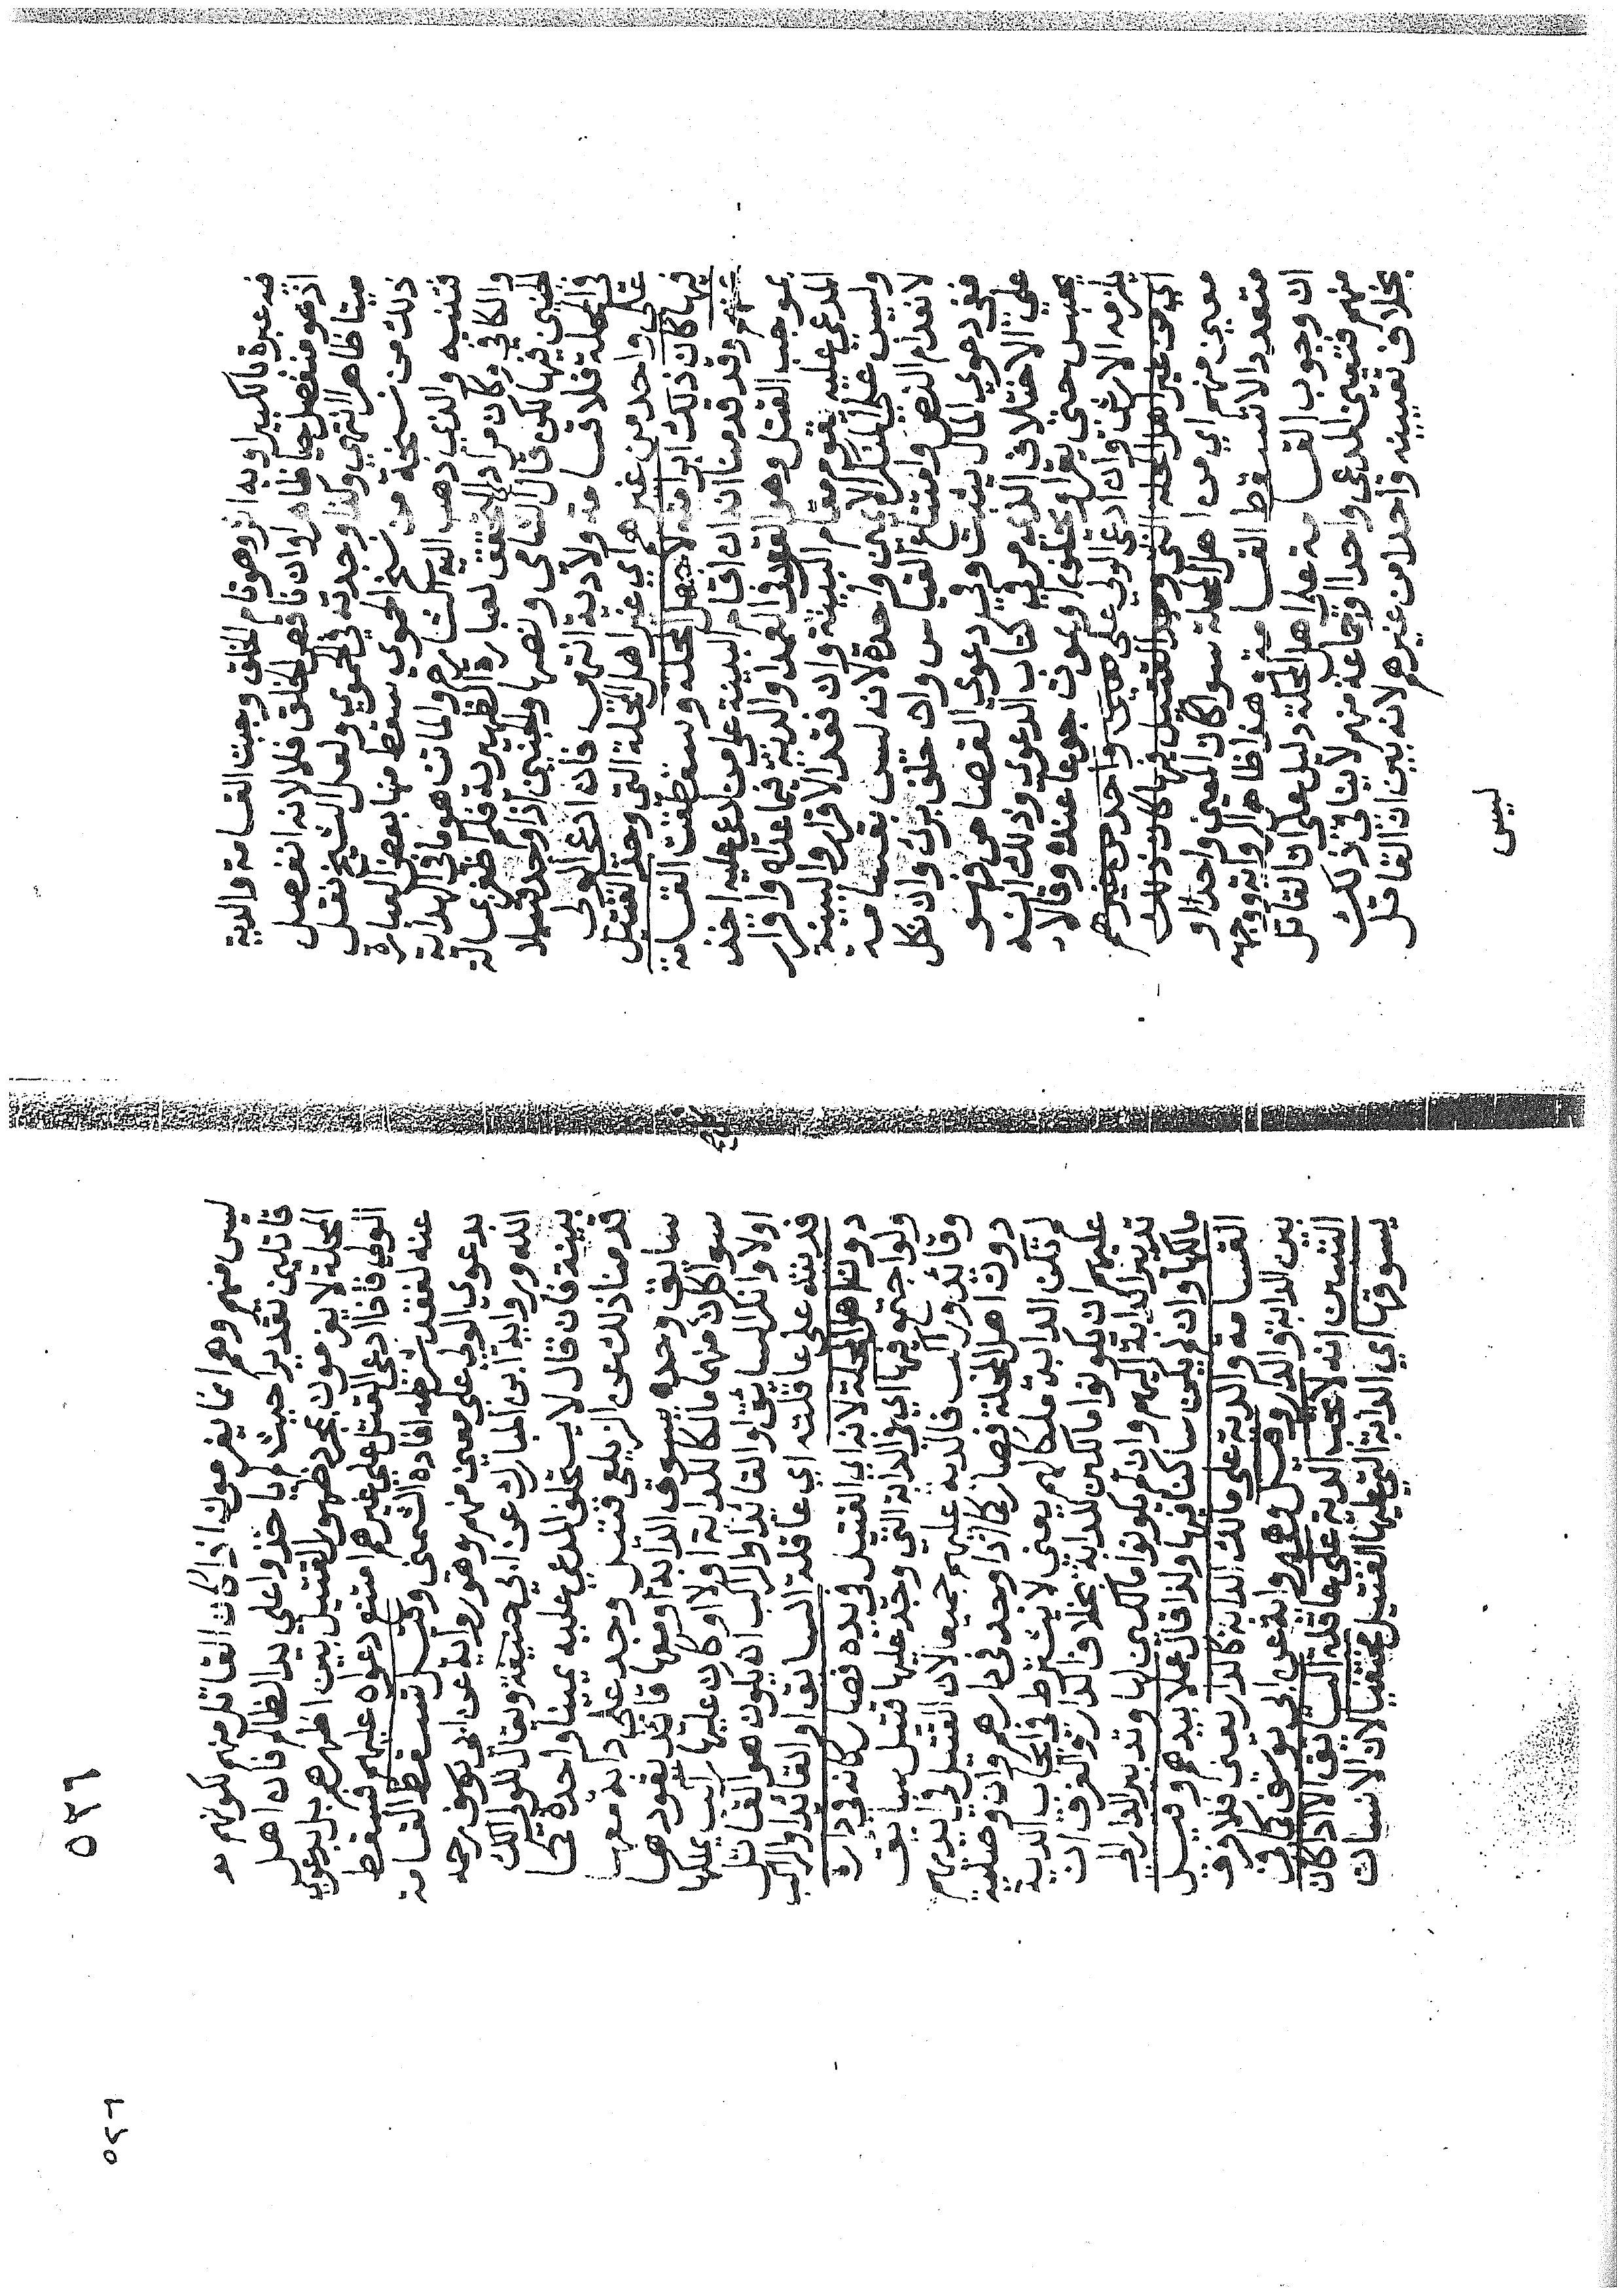 فيه عبرة بالكبير او به اثر وهو تام الخلق وجبت القسامة والدية
اذ هو منفصل حيا ظاهرا وان ناقص الخلق فلا لانه انفصل
ميتا ظاهرا انتهي وكذا وجدته في الحموي ولعل الشيخ نقل
ذلك من نسخة من نسخ الحموي سقط منها بعض العبارة
فتنبه والذي ذهب اليه الشارح والماتن هو ما في الهداية
والكافي وكان مراد المحقق لعبارة الظهيرية فلم اظفر بمسالة
الجنين فيها لكن قال الشامي ونصها والجنين اذا وجد قتيلا
في المحلة فلا قسامة ولا دية انتهى فان ادعى الولي
على واحد من غيرهم اي غير اهل المحلة التي وجد القتيل
فيها كان ذلك ابراء منه لاهل المحلة وسقطت القسامة
عنهم وقد قدمنا انه ان اقام البينة على من ادعى عليه اخذ
بموجب القتل وهو القود في العمد والدية فيما عداه واقرار
المدعي عليه يقوم مقام البينة وان فقد الاقرار والبينة
وليس على المنكر الا يمين واحدة لانه ليس بقسامة
لانعدام النص وامتناع القياس وان حلف برئ وان نكل
ففي دعوي المال يثبت وفي دعوي القصاص فهو
علي الاختلاف الذي مر في كتاب الدعوي وذلك انه
يحبس حتي يقر او يحلف او يموت جوعا عنده وقالا
يلزمه الارش وان ادعى الولي على معين واحد من غيرهم
اي من غير اهل المحلة التي وجد القتيل فيها كان ذلك
معين منهم اي من اهل المحلة سوا كان المعين واحدا او
متعددا لا تسقط القسامة هذا ظاهر الرواية ووجهه
ان وجوب القسامة على اهل المحلة دليل على ان القاتل
منهم فتعيين المدعي واحدا او جماعة منهم لا ينافي ذلك
بخلاف تعيينه واحدا من غيرهم لانه بين ان القاتل
ليس
٥٣٦
ليس منهم وهم انما يغرمون اذا كان القاتل منهم لكونهم
قاتلين تقديرا حيث لم ياخذوا علي يد الظالم فان اهل
المحلة لا يغرمون بمجرد ظهور القتيل بين اظهرهم بل بدعوي
الولي فاذا ادعى القتل علي غيرهم امتنع دعواه عليهم فسقط
عنه لفقد شرطه افاده الشمني وقيل تسقط القسامة
بدعوي الولي على معين منهم وهو رواية عن ابي يوسف رحمه
الله ورواية ابن المبارك عن ابي حنيفة ويقال للولي الك
بينة فان قال لا يستحلف المدعي عليه يمينا واحدة كما
قدمنا ذلك عن الزيلعي قتيل وجد على دابة معها
سائق وحده يسوق الدابة او معها قائد يقودها
سوا كان منهما مالكا للدابة او لا او كان عليها راكب يملكها
او لا وانكر السائق او القائد او الراكب ان يكون هو القاتل
فديته على عاقلته اي عاقلة السائق او القائد او الراكب
دون اهل المحلة لانه اي القتيل في يده فصار كانه في داره
ولو اجتمع فيها اي في الدابة التي وجد عليها قتيل سائق
وقائد وراكب فالدية عليهم جميعا لان القتيل في ايديهم
دون اهل المحلة فصار كما اذا وجد في دارهم وان وصلية
لم تكن الدابة ملكا لهم يعني لا يشترط في ايجاب الدية
عليهم ان يكونوا مالكين للدابة بخلاف الدار والفرق ان
تدبير الدابة اليهم وان لم يكونوا مالكين لها وتدبير الدار الي
مالكها وان لم يكن ساكنا فيها ولذا قال عملا بيدهم وقيل
القسامة والدية على مالك الدابة كالدار يعني فلا فرق
بين الدابة والدار وقيل وهو رواية عن ابي يوسف كما في
التبيين انه لا تجب الدية على عاقلة السائق الا اذا كان
يسوقها اي الدابة التي عليها القتيل مختفيا لان الانسان
٥٣٦